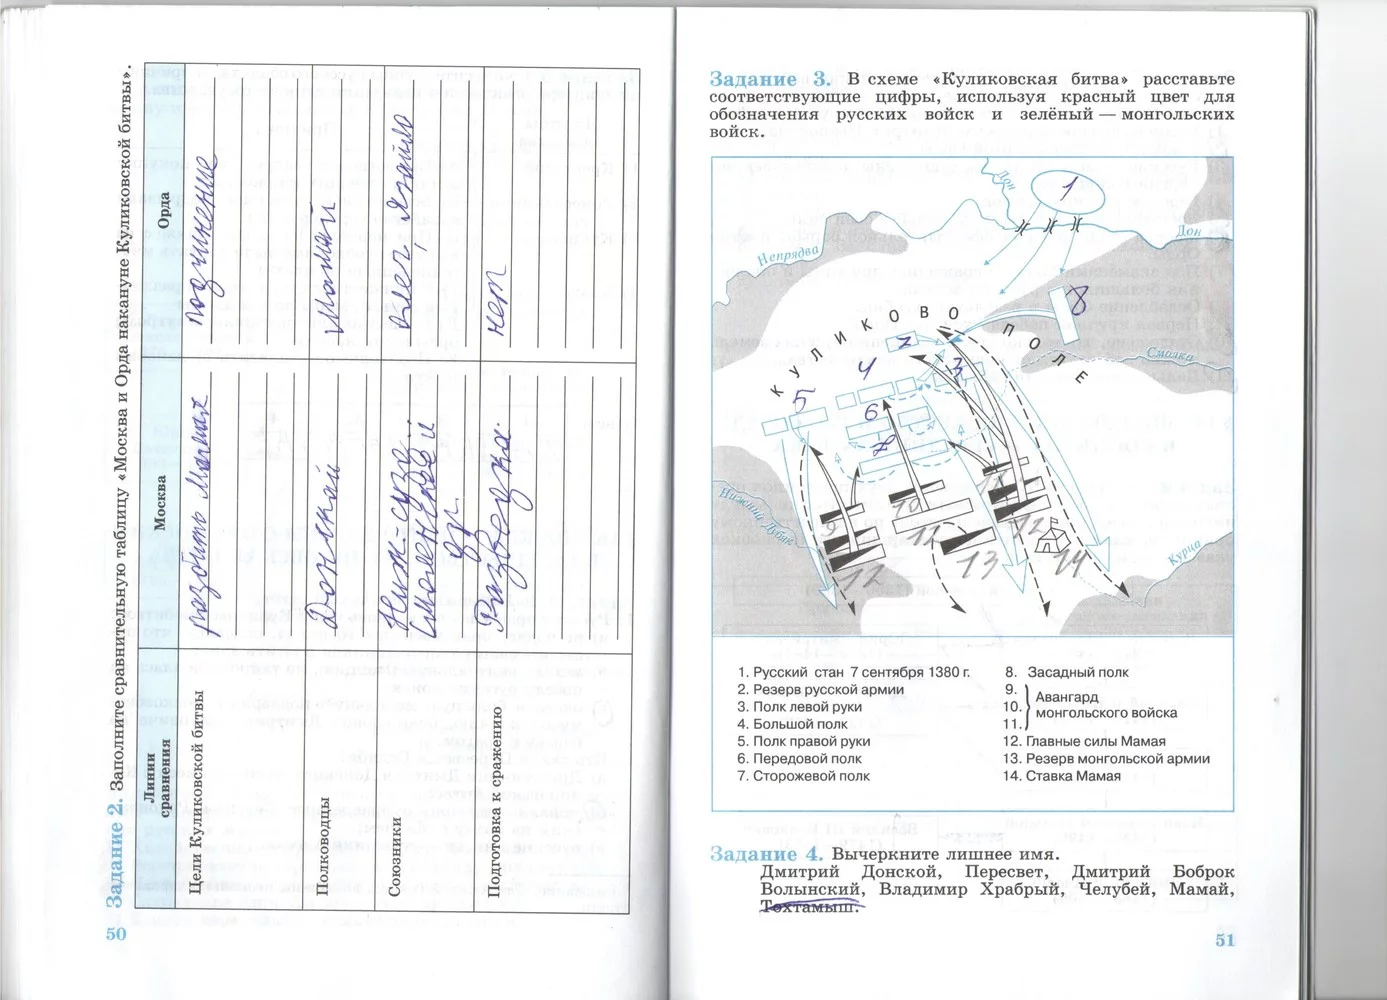 Задание 2. Заполните сравнительную таблицу «Москва и Орда накануне Куликовской битвы».
Линии сравнения
Москва
Орда
Цели Куликовской битвы
разбить Мамая
подчинение
Полководцы
Донской
Мамай
Союзники
Олег, Ягайло
Смоленское и
др.
Подготовка к сражению
Разведка.
нет
50
Задание 3. В схеме «Куликовская битва» расставьте
соответствующие цифры, используя красный цвет для
обозначения русских войск и зелёный — монгольских
войск.
Дон
1
Дон
Непрядва
8
КУЛИКОВО ПОЛЕ
2
Смолка
4
3
5
6
Нижний Дубик
9
10
11
12
12
12
13
14
Курца
1. Русский стан 7 сентября 1380 г.
2. Резерв русской армии
3. Полк левой руки
4. Большой полк
5. Полк правой руки
6. Передовой полк
7. Сторожевой полк
8. Засадный полк
9.
10.
11.
Авангард
монгольского войска
12. Главные силы Мамая
13. Резерв монгольской армии
14. Ставка Мамая
Задание 4. Вычеркните лишнее имя.
Дмитрий Донской, Пересвет, Дмитрий Боброк
Волынский, Владимир Храбрый, Челубей, Мамай,
Тохтамыш.
51